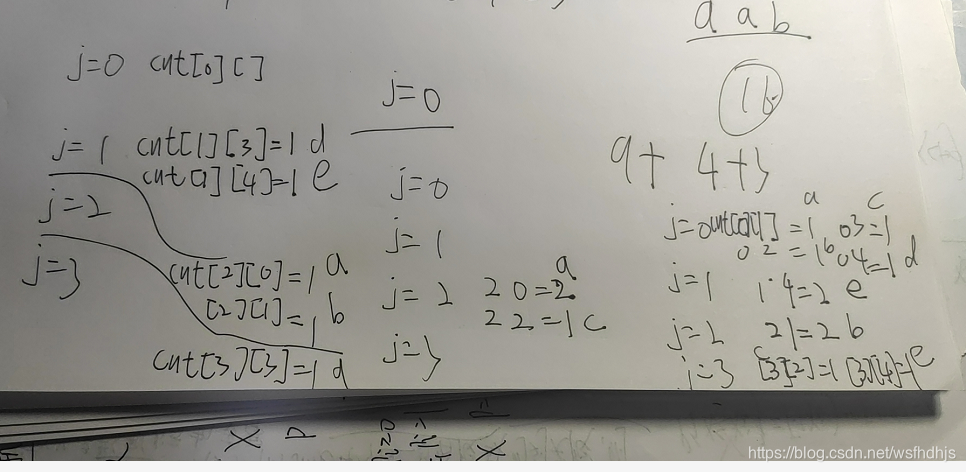 j=0 cnt[0][]
j=1 cnt[1][3]=1 d
cnt[1][4]=1 e
j=2
j=3
cnt[2][0]=1 a
[2][1]=1 b
cnt[3][3]=1 d
j=0
j=0
j=1
a
j=2 20=2
22=1 c
j=3
a a b
16
9+ 4+3
a c
j=0 cnt[0][1]=1 03=1
02=1 b 04=1 d
j=1 14=2 e
j=2 21=2 b
c
j=3 [3][2]=1 [3][4]=1 e
https://blog.csdn.net/wsfhdhjs